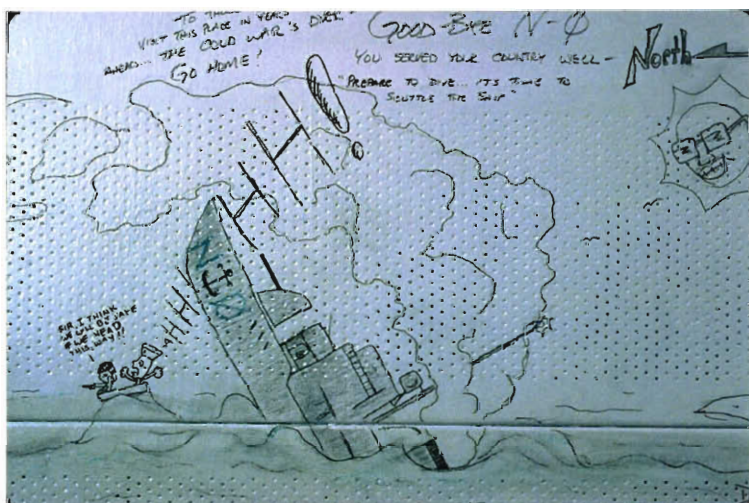 TO THOSE
VISIT THIS PLACE IN YEARS
AHEAD... THE COLD WAR'S OVER.
GO HOME!
GOOD-BYE N-Ø
YOU SERVED YOUR COUNTRY WELL -
"PREPARE TO DIVE... IT'S TIME TO
SCUTTLE THE SHIP"
North
N
HHH!
HHH
SIR, I THINK
WE WILL BE SAFE
IF WE HEAD
THIS WAY!!